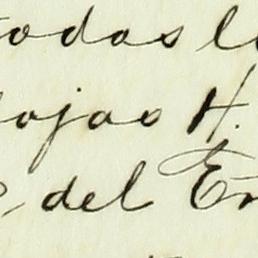 todas l
ojas H.
del En